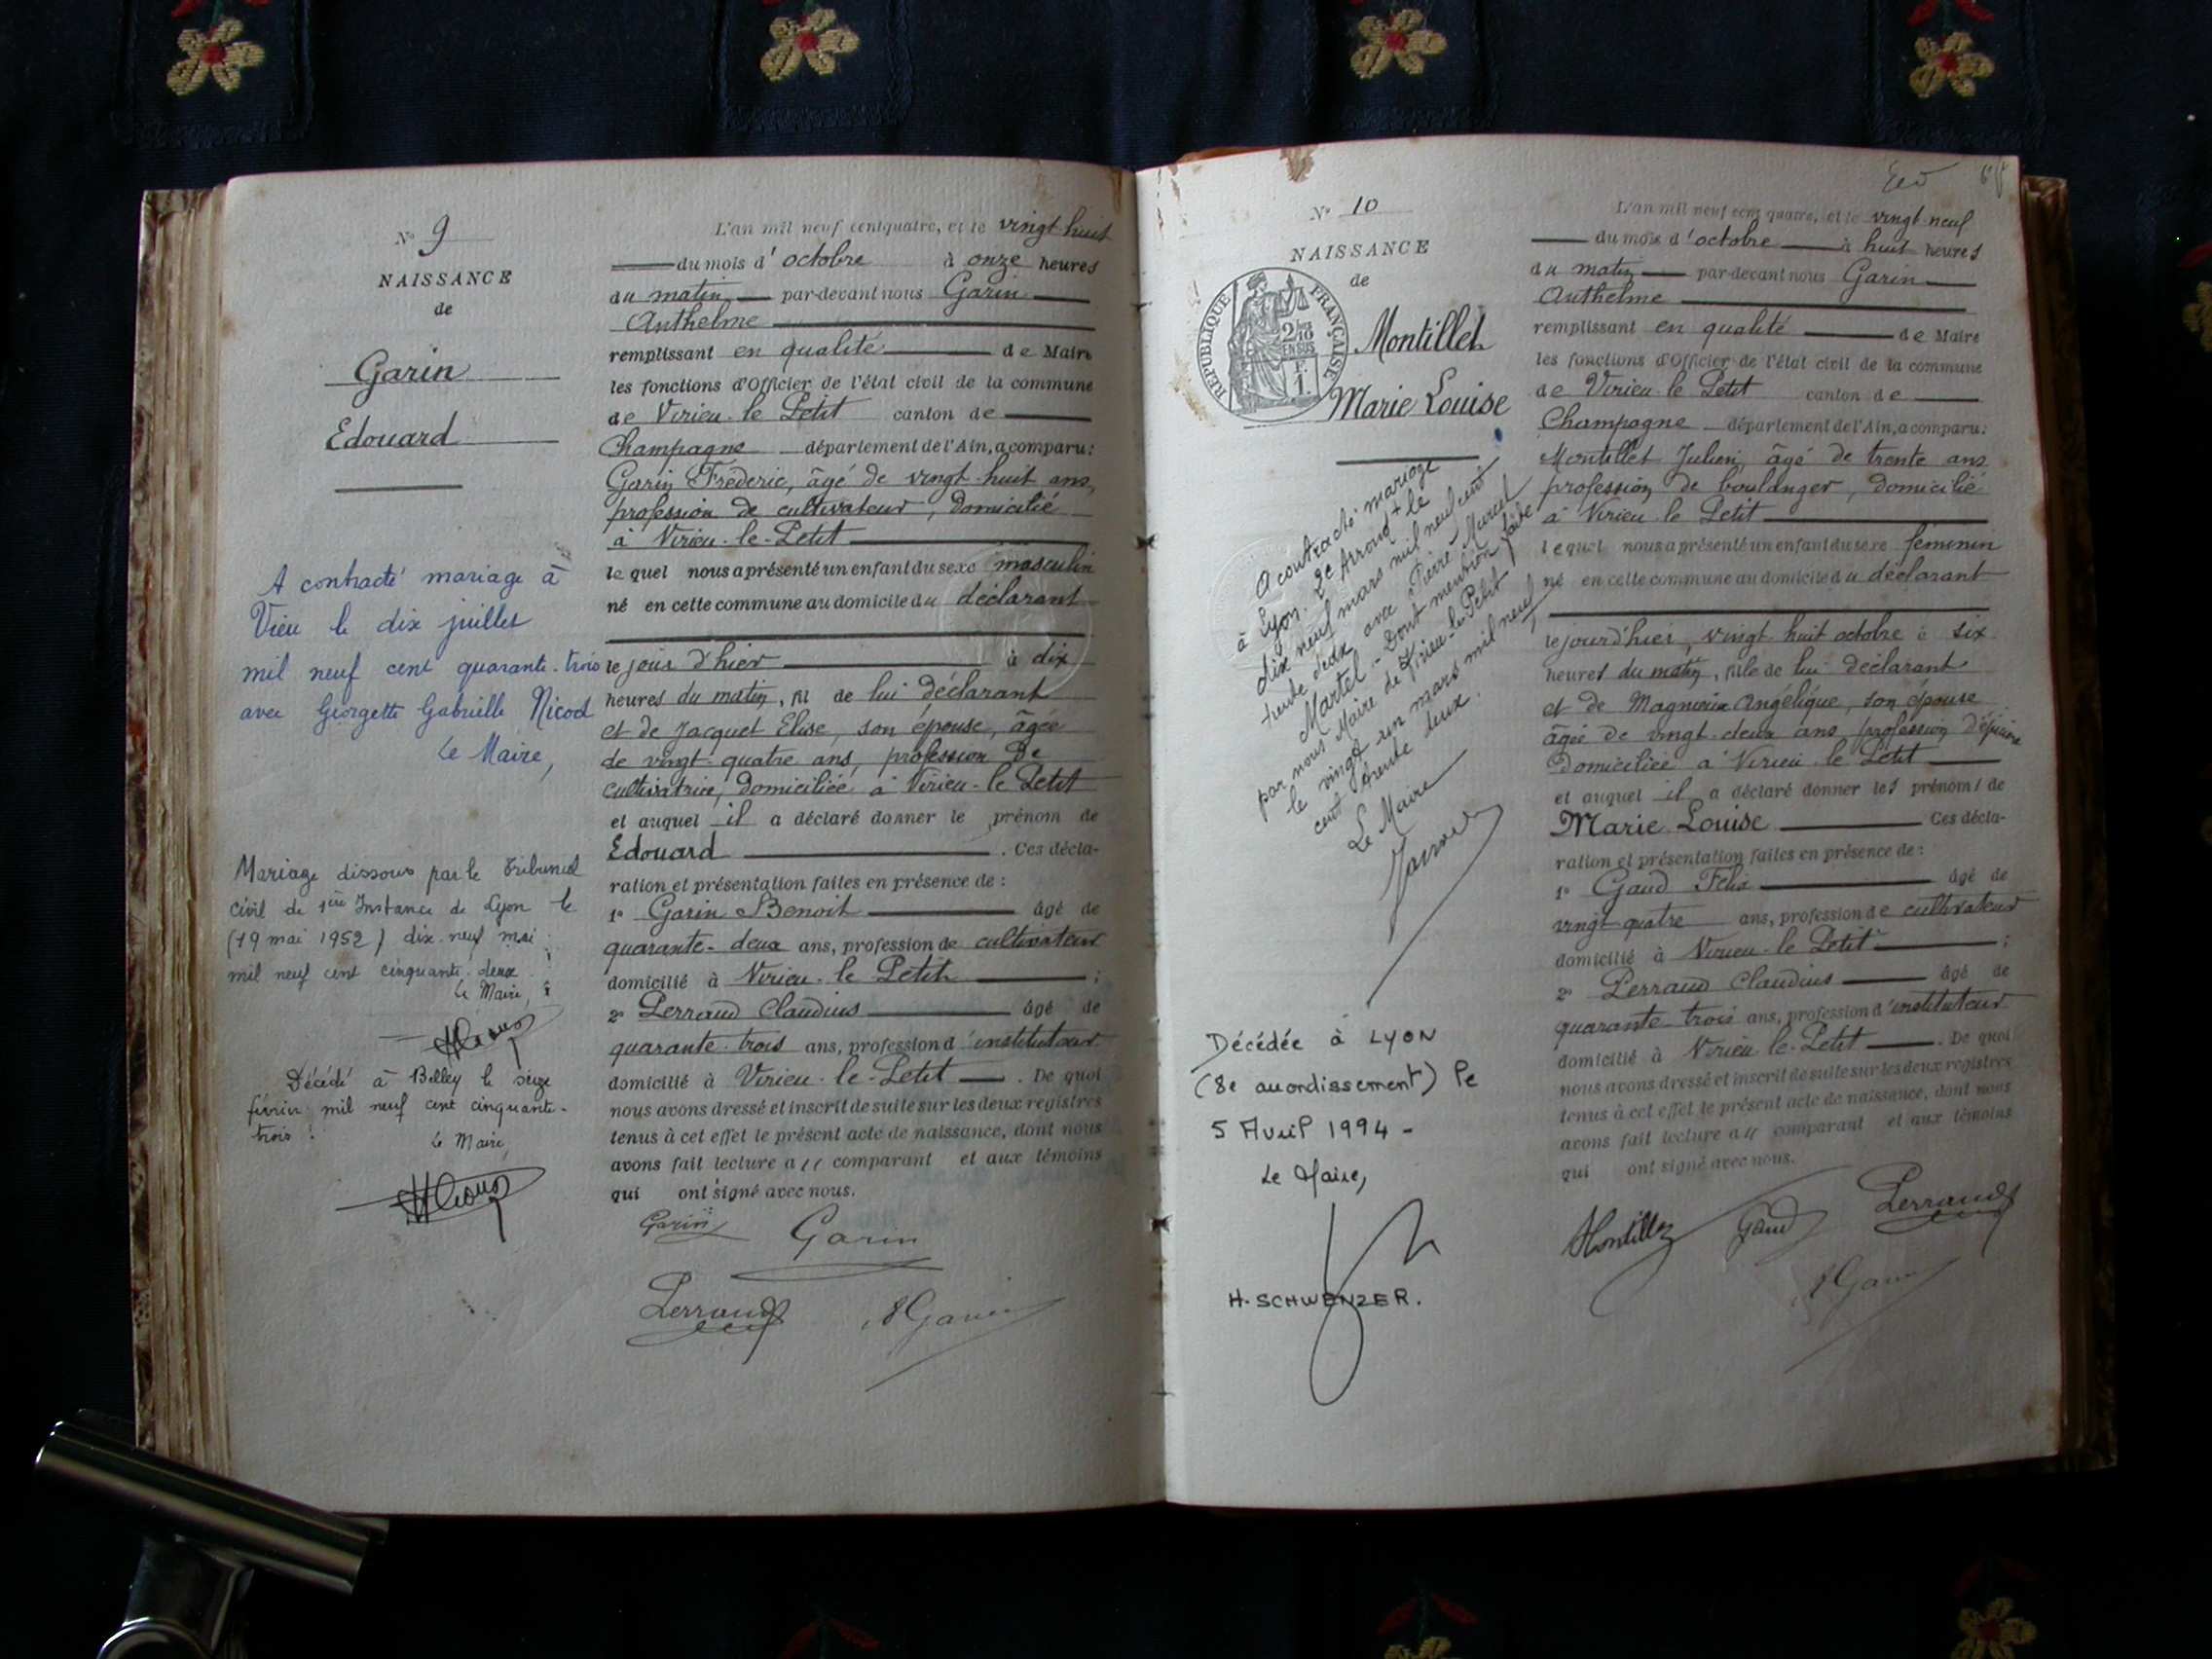 N° 9
NAISSANCE
de
Garin
Edouard
A contracté mariage à
Vieu le dix juillet
mil neuf cent quarante-trois
avec Georgette Gabrielle Nicod
Le Maire,
Mariage dissous par le Tribunal
civil de 1ère Instance de Lyon le
(19 mai 1952) dix-neuf mai
mil neuf cent cinquante-deux
Le Maire,
Décédé à Belley le seize
février mil neuf cent cinquante-
trois.
Le Maire,
L'an mil neuf cent quatre, et le vingt-huit
du mois d'octobre à onze heures
du matin par-devant nous Garin
Anthelme
remplissant en qualité de Maire
les fonctions d'Officier de l'état civil de la commune
de Virieu-le-Petit canton de
Champagne département de l'Ain, a comparu:
Garin Frédéric, âgé de vingt-huit ans,
profession de cultivateur, domicilié
à Virieu-le-Petit
lequel nous a présenté un enfant du sexe masculin
né en cette commune au domicile du déclarant
le jour d'hier à dix
heures du matin, fil de lui déclarant
et de Jacquet Elise, son épouse, âgée
de vingt-quatre ans, profession de
cultivatrice, domiciliée à Virieu-le-Petit
et auquel il a déclaré donner le prénom de
Edouard. Ces décla-
ration et présentation failes en présence de :
1° Garin Benoit âgé de
quarante-deux ans, profession de cultivateur
domicilié à Virieu-le-Petit ;
2° Perraud Claudius âgé de
quarante-trois ans, profession d'instituteur
domicilié à Virieu-le-Petit. De quoi
nous avons dressé et inscrit de suite sur les deux registres
tenus à cet effet le présent acte de naissance, dont nous
avons fait lecture au comparant et aux témoins
qui ont signé avec nous.
Garin Garin
Perraud A Garin
N° 10
NAISSANCE
de
RÉPUBLIQUE FRANÇAISE
2/10
EN SUS
1 F.
Montillet
Marie Louise
A contracté mariage
à Lyon 2e Arrondt le
dix neuf mars mil neuf cent
trente deux avec Pierre Marcel
Martel - Dont mention faite
par nous Maire de Virieu-le-Petit
le vingt un mars mil neuf
cent trente deux.
Le Maire
Décédée à LYON
(8e arrondissement) le
5 Avril 1994 -
Le Maire,
H. SCHWENZER.
L'an mil neuf cent quatre, et le vingt-neuf
du mois d'octobre à huit heures
du matin par-devant nous Garin
Anthelme
remplissant en qualité de Maire
les fonctions d'Officier de l'état civil de la commune
de Virieu-le-Petit canton de
Champagne département de l'Ain, a comparu:
Montillet Julien âgé de trente ans
profession de boulanger, domicilié
à Virieu-le-Petit
lequel nous a présenté un enfant du sexe féminin
né en cette commune au domicile du déclarant
le jour d'hier, vingt huit octobre à six
heures du matin, fille de lui déclarant
et de Magnieux Angélique, son épouse
âgée de vingt-deux ans, profession d'épicière
domiciliée à Virieu-le-Petit
et auquel il a déclaré donner les prénoms de
Marie Louise Ces décla-
ration et présentation failes en présence de :
1° Gaud Félix âgé de
vingt-quatre ans, profession de cultivateur
domicilié à Virieu-le-Petit ;
2° Perraud Claudius âgé de
quarante-trois ans, profession d'instituteur
domicilié à Virieu-le-Petit. De quoi
nous avons dressé et inscrit de suite sur les deux registres
tenus à cet effet le présent acte de naissance, dont nous
avons fait lecture au comparant et aux témoins
qui ont signé avec nous.
Montillet Gaud Perraud
A Garin